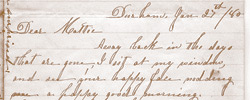 Durham. Jan 27th/80
Dear Mattie
Away back in the days
that are gone, I sit at my window,
and see your happy face nodding
me a happy good morning.